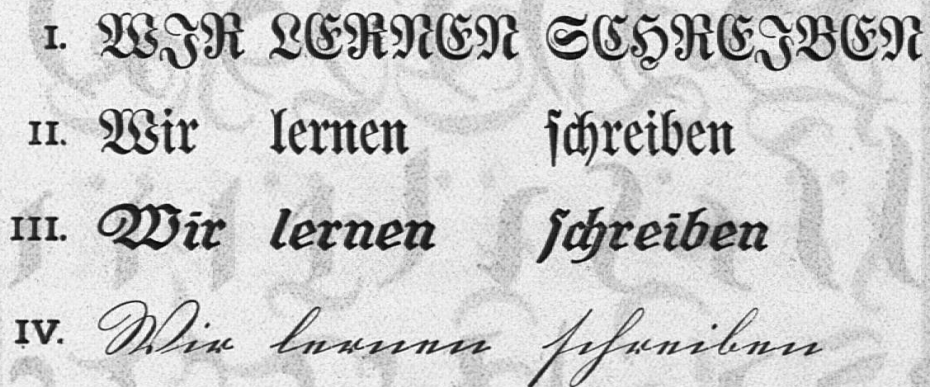 I. WIR LERNEN SCHREIBEN
II. Wir lernen ſchreiben
III. Wir lernen ſchreiben
IV. Wir lernen ſchreiben